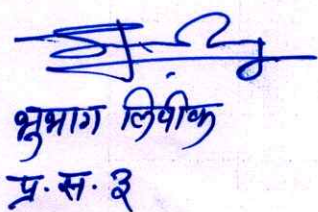 भुभाग लिपीक
प्र. स. ३